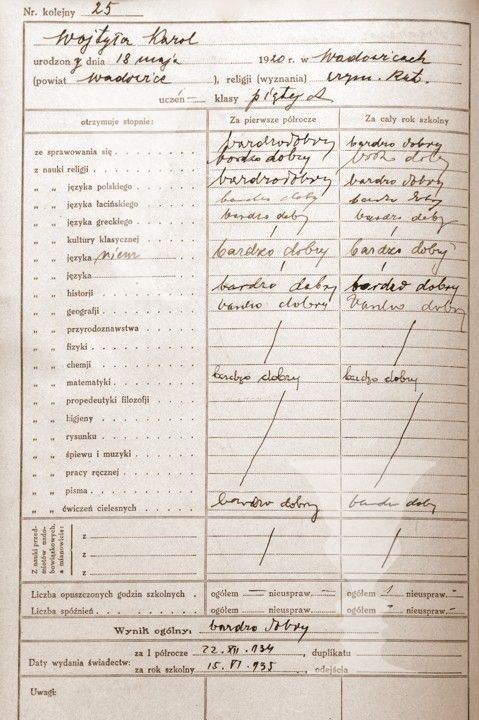 Nr. kolejny 25
Wojtyła Karol
urodzony dnia 18 maja 1920 r. w Wadowicach
(powiat Wadowice ), religii (wyznania) rzym. kat.
uczeń klasy piątej A
otrzymuje stopnie: Za pierwsze półrocze Za cały rok szkolny
ze sprawowania się bardzo dobry bardzo dobry
z nauki religii bardzo dobry bardzo dobry
„ „ języka polskiego bardzo dobry bardzo dobry
„ „ języka łacińskiego bardzo dobry bardzo dobry
„ „ języka greckiego bardzo dobry bardzo dobry
„ „ kultury klasycznej / /
„ „ języka niem bardzo dobry bardzo dobry
„ „ języka / /
„ „ historji bardzo dobry bardzo dobry
„ „ geografji bardzo dobry bardzo dobry
„ „ przyrodoznawstwa
„ „ fizyki
„ „ chemji
„ „ matematyki bardzo dobry bardzo dobry
„ „ propedeutyki filozofji
„ „ higjeny
„ „ rysunku
„ „ śpiewu i muzyki
„ „ pracy ręcznej
„ „ pisma
„ „ ćwiczeń cielesnych bardzo dobry bardzo dobry
Z nauki przedmiotów nadobowiązkowych, a mianowicie:
z
z
z
Liczba opuszczonych godzin szkolnych ogółem — nieuspraw. — ogółem 1 nieuspraw. -
Liczba spóźnień ogółem — nieuspraw. — ogółem - nieuspraw. -
Wynik ogólny: bardzo dobry
Daty wydania świadectw: za I półrocze 22. XII. 934 , duplikatu
za rok szkolny 15. VI. 935 , odejścia
Uwagi: